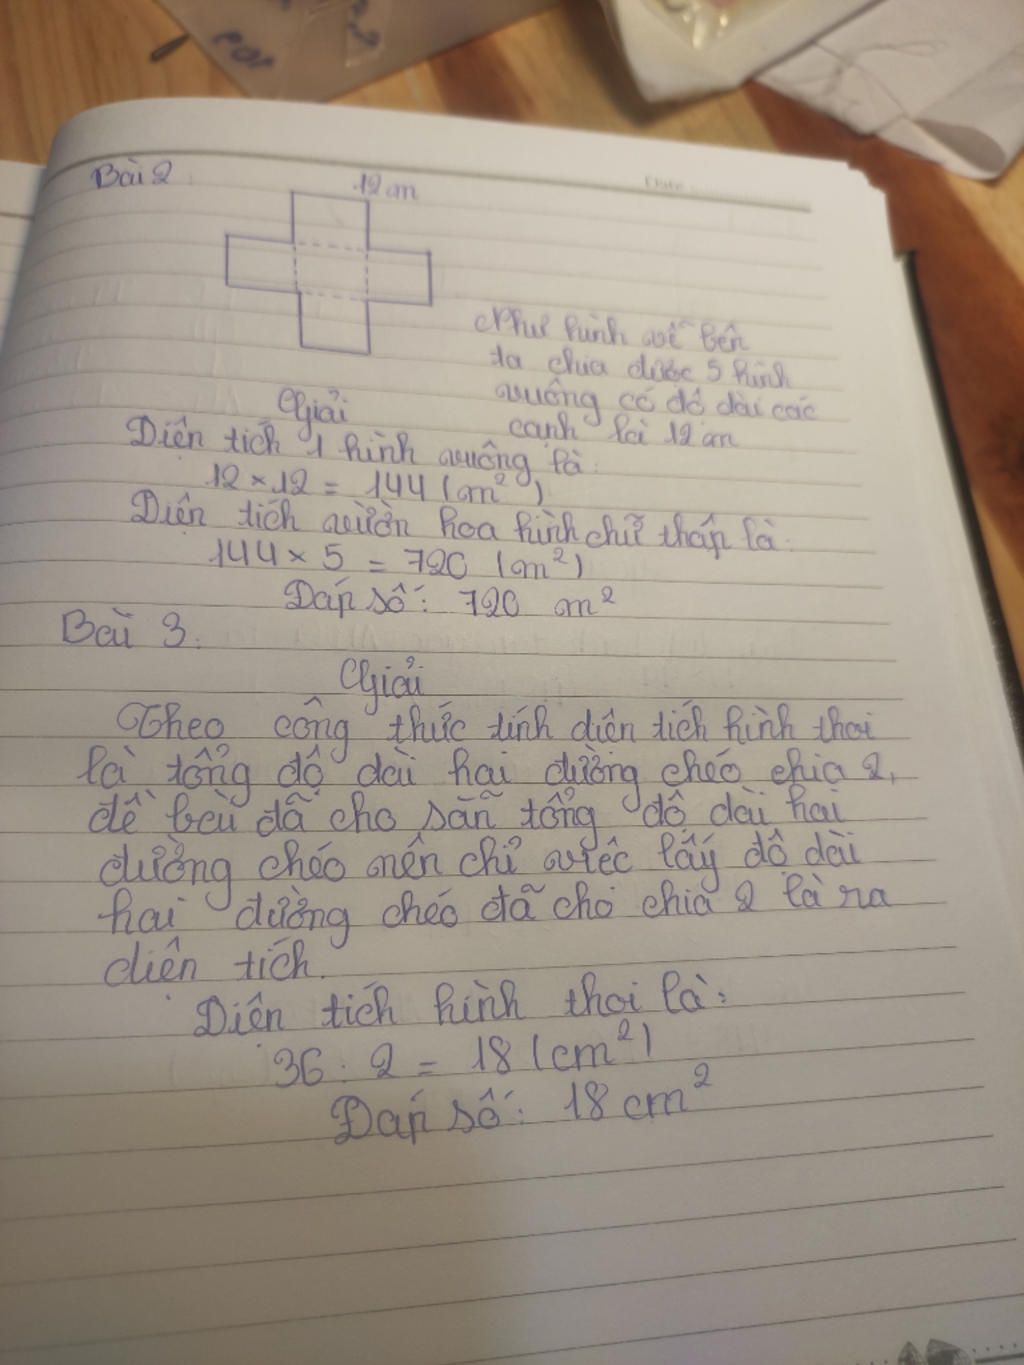 POP
Date
Bài 2:
12 cm
Như hình vẽ bên
ta chia được 5 hình
vuông có độ dài các
cạnh là 12 cm
Giải
Diện tích 1 hình vuông là:
12 × 12 = 144 (m²)
Diện tích vườn hoa hình chữ thấp là:
144 × 5 = 720 (m²)
Đáp số: 720 m²
Bài 3:
Giải
Theo công thức tính diện tích hình thoi
là tổng độ dài hai đường chéo chia 2,
đề bài đã cho sẵn tổng độ dài hai
đường chéo nên chỉ việc lấy độ dài
hai đường chéo đã cho chia 2 là ra
diện tích.
Diện tích hình thoi là:
36 : 2 = 18 (cm²)
Đáp số: 18 cm²